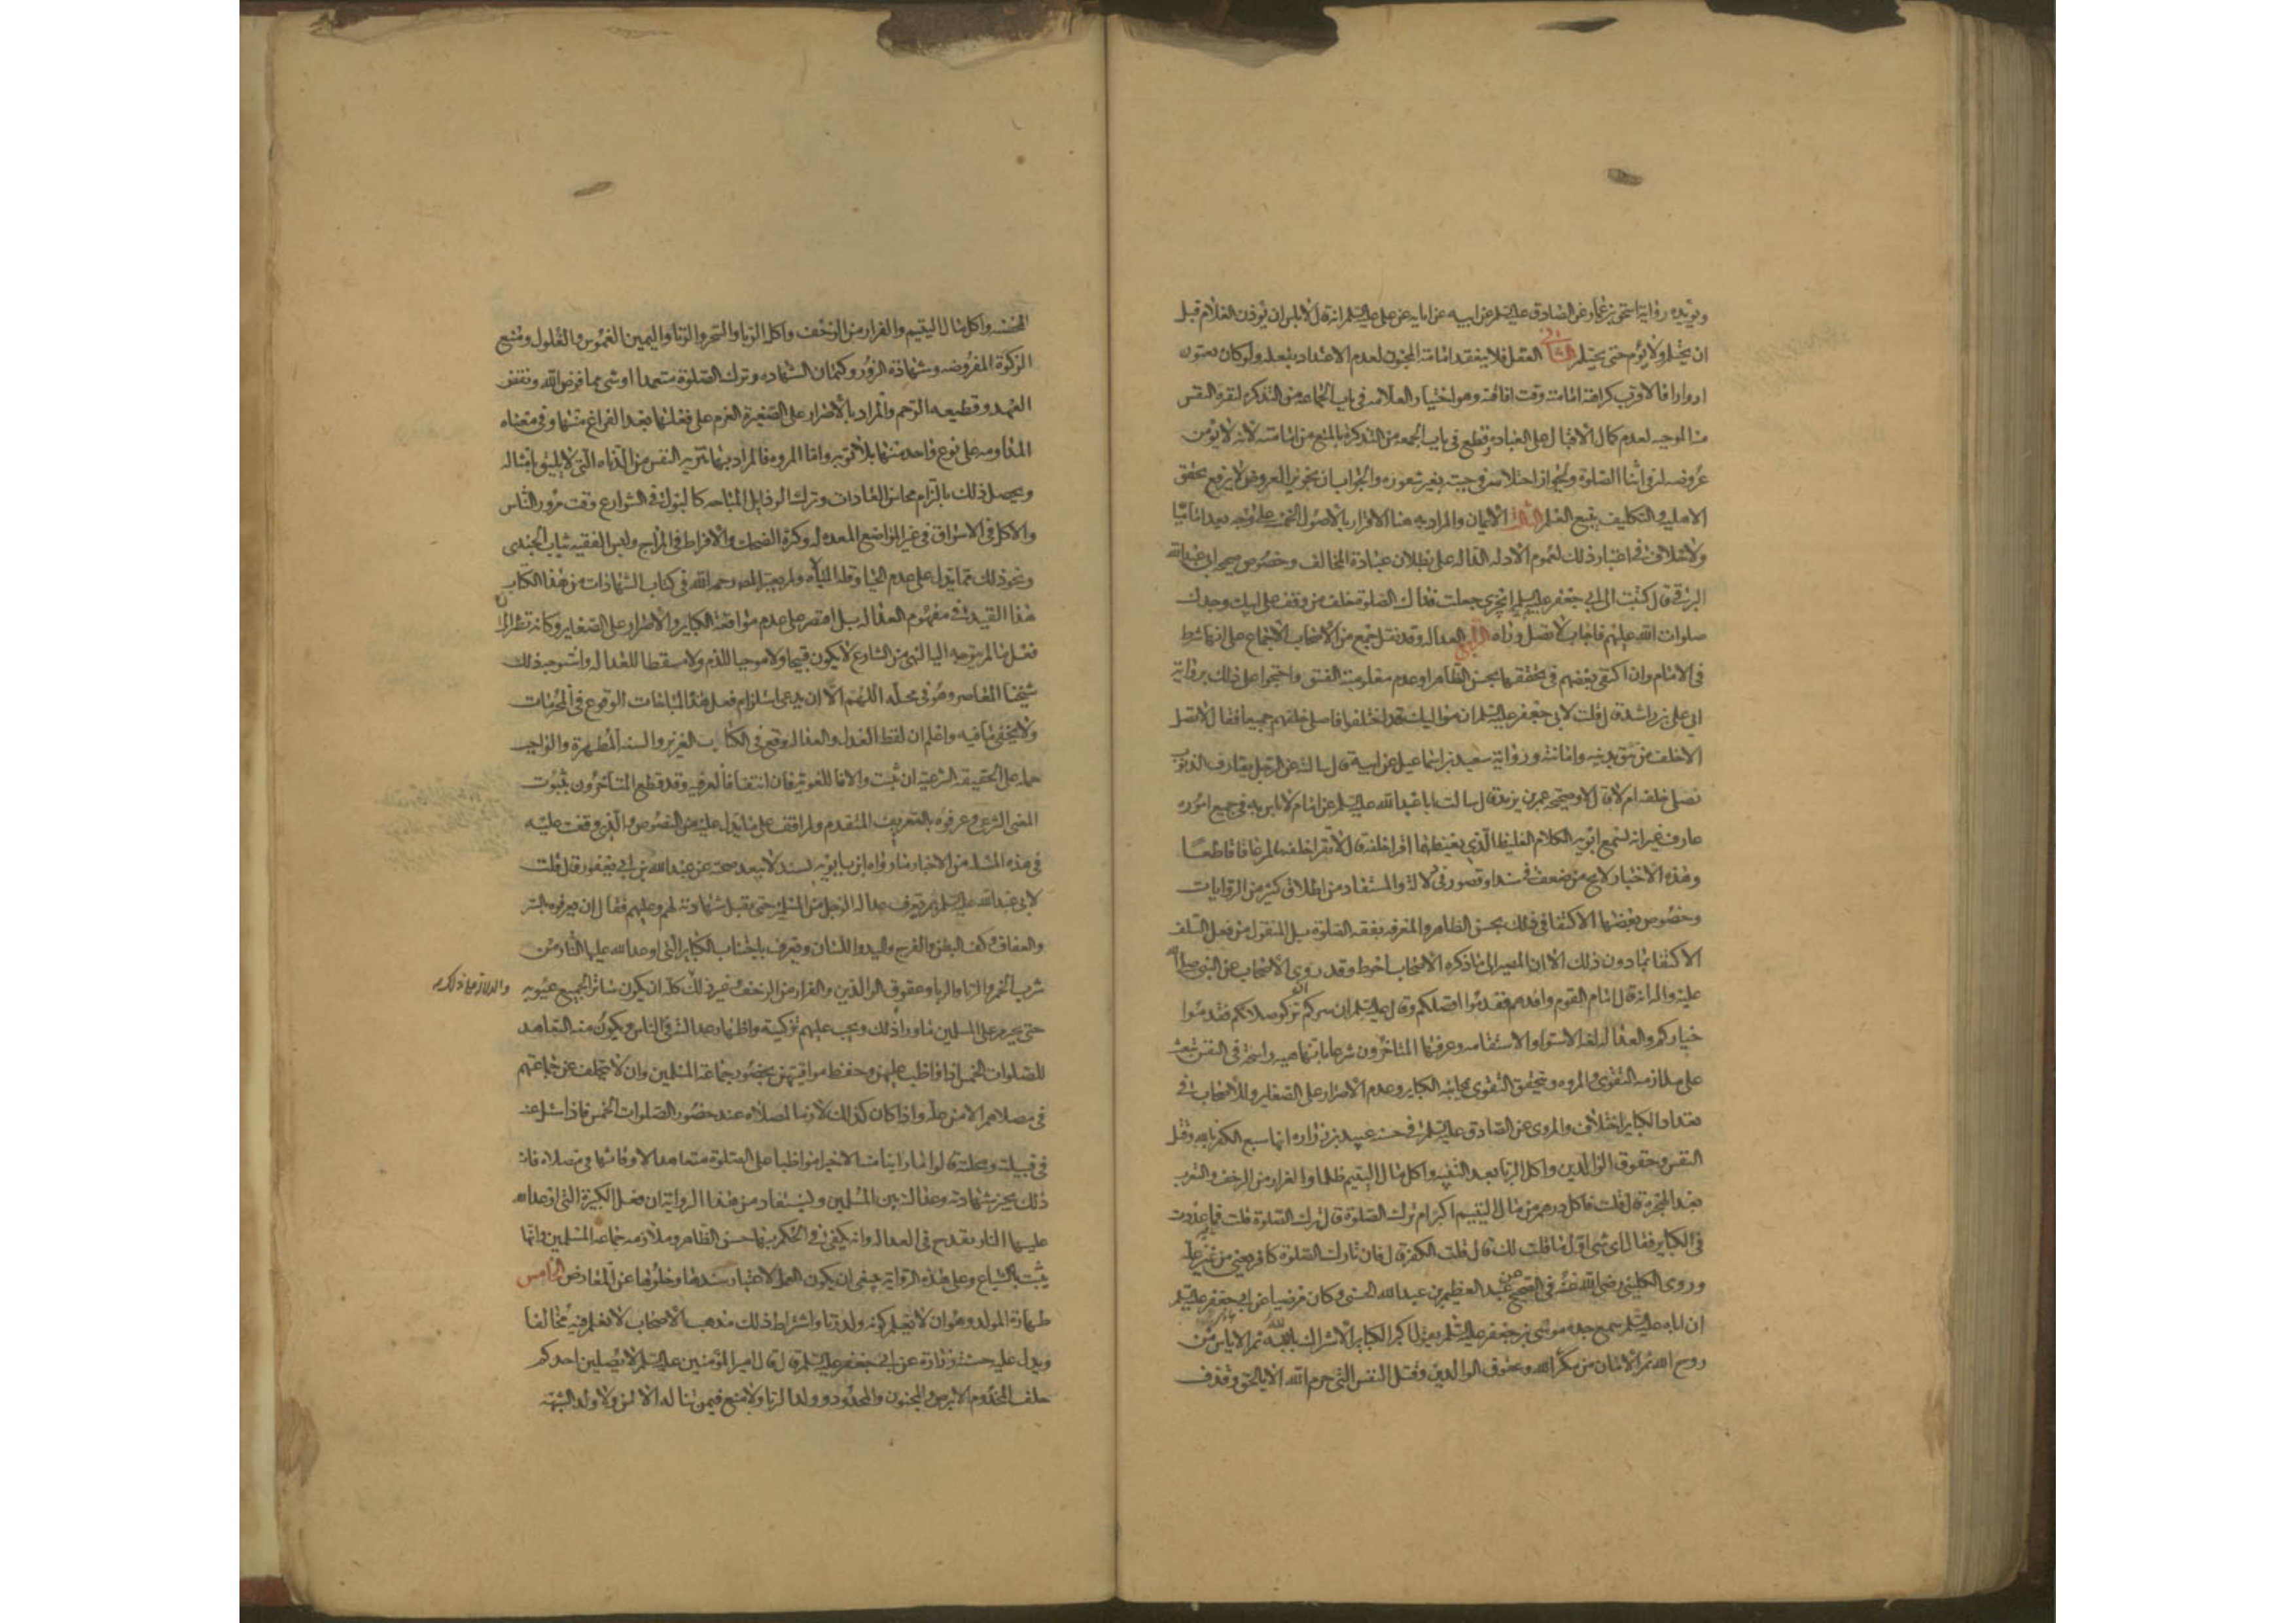 ويؤيده رواية اسحق بن عمار عن الصادق عليه السلم عن ابيه عن ابايه عن علي عليه السلم انه قال لا باس ان يؤذن الغلام قبل
ان يحتلم ولا يؤم حتى يحتلم الثاني العقل فلا ينعقد امامة المجنون لعدم الاعتداد بفعله ولو كان جنونه
ادوارا فالاقرب كراهة امامته وقت افاقته وهو اختيار العلامه في باب الجماعه من التذكره لقوله النقص
منا لموجبه لعدم كمال الاقبال على العباده وقطع في باب الجمعه من التذكرة بالمنع من امامته لانه لا يؤمن
عروضه له في اثنا الصلوة ولجواز احتلامه في جنته بغير شعوره والجواب ان تجويز العروض لا يرفع تحقق
الاهليه والتكليف يتبع العلم الثالث الايمان والمراد به هنا الاقرار بالاصول الخمسه على وجه يعد اماميا
ولا خلاف في اعتبار ذلك لعموم الادله الداله على بطلان عبادة المخالف وخصوص صحيحه ابي عبد الله
البرقي قال كتبت الى ابي جعفر عليه السلم ايجزي جعلت فداك الصلوة خلف من وقف على ابيك وجدك
صلوات الله عليهم فاجاب لا تصل وراه الرابع العداله وقد نقل جمع من الاصحاب الاجماع على انها شرط
في الامام وان اكتفى بعضهم في تحققها بحسن الظاهر او عدم معلومية الفسق واحتجوا على ذلك برواية
ابي علي بن راشد قال قلت لابي جعفر عليه السلم ان مواليك قد اختلفوا فاصلي خلفهم جميعا فقال لا تصل
الا خلف من تثق بدينه وامانته ورواية سعيد بن اسماعيل عن ابيه قال سالته عن الرجل يقارف الذنوب
نصلي خلفه ام لا قال لا وصحيحة عمر بن يزيد قال سالت ابا عبد الله عليه السلم عن امام لا باس به في جميع اموره
عارف غير انه يسمع ابويه الكلام الغليظ الذي يغيظهما اقرا خلفه قال لا تقرا خلفه ما لم يكن عاقا قاطعا
وهذه الاخبار لا تخ من ضعف في سند او قصور في دلالة والمستفاد من اطلاق كثير من الروايات
وخصوص بعضها الاكتفا في ذلك بحسن الظاهر والمعرفه بفقه الصلوة بل المنقول من فعل السلف
الاكتفا بما دون ذلك الا ان المصير الى ما ذكره الاصحاب احوط وقد روى الاصحاب عن النبي صلى الله
عليه واله انه قال امام القوم وافدهم فقدموا افضلكم وقال عليه السلم ان سركم ان تزكو صلاتكم فقدموا
خياركم والعداله لغة الاستواء والاستقامه وعرفها المتاخرون شرعا بانها هيئه راسخة في النفس تبعث
على ملازمه التقوى والمروه ويتحقق التقوى بمجانبه الكباير وعدم الاصرار على الصغاير وللاصحاب في
تعداد الكباير اختلاف والمروي عن الصادق عليه السلم في حسنه عبيد بن زراره انها سبع الكفر بالله وقتل
النفس وعقوق الوالدين واكل الربا بعد البينه واكل مال اليتيم ظلما والفرار من الزحف والتعرب
بعد الهجرة قال قلت فاكل درهم من مال اليتيم اكبر ام ترك الصلوة قال ترك الصلوة قلت فما عددت
في الكباير فقال اي شي اول ما قلت لك قال قلت الكفر قال فان تارك الصلوة كافر يعني من غير علة
وروى الكليني رضي الله عنه في الصحيح عن عبد العظيم بن عبد الله الحسني وكان مرضيا عن ابي جعفر عليه السلم
ان اباه عليه السلم سمع جده موسى بن جعفر عليه السلم يقول اكبر الكباير الاشراك بالله ثم الاياس من
روح الله ثم الامان من مكر الله وعقوق الوالدين وقتل النفس التي حرم الله الا بالحق وقذف
المحصنه واكل مال اليتيم والفرار من الزحف واكل الربا والسحر والزنا واليمين الغموس والغلول ومنع
الزكوة المفروضه وشهادة الزور وكتمان الشهاده وترك الصلوة متعمدا او شي مما فرض الله ونقض
العهد وقطيعه الرحم والمراد بالاصرار على الصغيرة العزم على فعلها بعد الفراغ منها وفي معناه
المداومه على نوع واحد منها بلا توبه واما المروه فالمراد بها تنزيه النفس من الدناه التي لا يليق بامثاله
ويحصل ذلك بالتزام محاسن العادات وترك الرذايل المباحه كالبول في الشوارع وقت مرور الناس
والاكل في الاسواق في غير المواضع المعده له وكثرة الضحك والافراط في المزاح ولبس الفقيه ثياب الجندي
ونحو ذلك مما يدل على عدم الحيا وقله المبالاه ولم يعتبر المصـ رحمه الله في كتاب الشهادات من هذا الكتاب
هذا القيد في مفهوم العداله بل اقتصر على عدم مواقعة الكباير والاصرار على الصغاير وكانه نظر الى ان
فعل ما لم يتوجه اليه النهي من الشارع لا يكون قبيحا ولا موجبا للذم ولا مسقطا للعداله واستوجه ذلك
شيخنا المعاصر وهو في محله اللهم الا ان يدعى استلزام فعل هذه المباحات الوقوع في المحرمات
ولا يخفى ما فيه واعلم ان لفظ العدل والعداله وقع في الكتاب العزيز والسنه المطهرة والواجب
حمله على الحقيقه الشرعيه ان ثبت والا فاللغويه فان انتفتا فالعرفيه وقد قطع المتاخرون بثبوت
المعنى الشرعي وعرفوه بالتعريف المتقدم ولم اقف على ما يدل عليه من النصوص والذي وقفت عليه
في هذه المسئله من الاخبار ما رواه ابن بابويه بسند لا يبعد صحته عن عبد الله بن ابي يعفور قال قلت
لابي عبد الله عليه السلم بم تعرف عداله الرجل من المسلمين حتى تقبل شهادته لهم وعليهم فقال ان تعرفوه بالستر
والعفاف وكف البطن والفرج واليد واللسان وتعرف باجتناب الكباير التي اوعد الله عليها النار من
شرب الخمر والزنا والربا وعقوق الوالدين والفرار من الزحف وغير ذلك كله ان يكون ساترا لجميع عيوبه
والدلالة على ذلك
حتى يحرم على المسلمين ما ورا ذلك ويجب عليهم تزكيته واظهار عدالته في الناس ويكون منه التعاهد
للصلوات الخمس اذا واظب عليهن وحفظ مواقيتهن بحضور جماعة المسلمين وان لا يتخلف عن جماعتهم
في مصلاهم الا من علة واذا كان كذلك لازما لمصلاه عند حضور الصلوات الخمس فاذا سئل عنه
في قبيلته ومحلته قالوا ما راينا منه الا خيرا مواظبا على الصلوة متعاهدا لاوقاتها في مصلاه فان
ذلك يجيز شهادته وعدالته بين المسلمين ويستفاد من هذا الرواية ان فعل الكبيرة التي اوعد الله
عليها النار يقدح في العداله وانه يكفي في الحكم بها حسن الظاهر وملازمه جماعه المسلمين وانها
يثبت بالشياع وعلى هذه الرواية ينبغي ان يكون العمل لاعتبار سندها وخلوها عن المعارض الخامس
طهارة المولد وهو ان لا يعلم كونه ولد زنا واشتراط ذلك مذهب الاصحاب لا نعلم فيه مخالفا
ويدل عليه حسنة زرارة عن ابي جعفر عليه السلم قال قال امير المؤمنين عليه السلم لا يصلين احدكم
خلف المجذوم والابرص والمجنون والمحدود وولد الزنا ولا يمنع فيمن تناله الالسن ولا ولد الشبهة